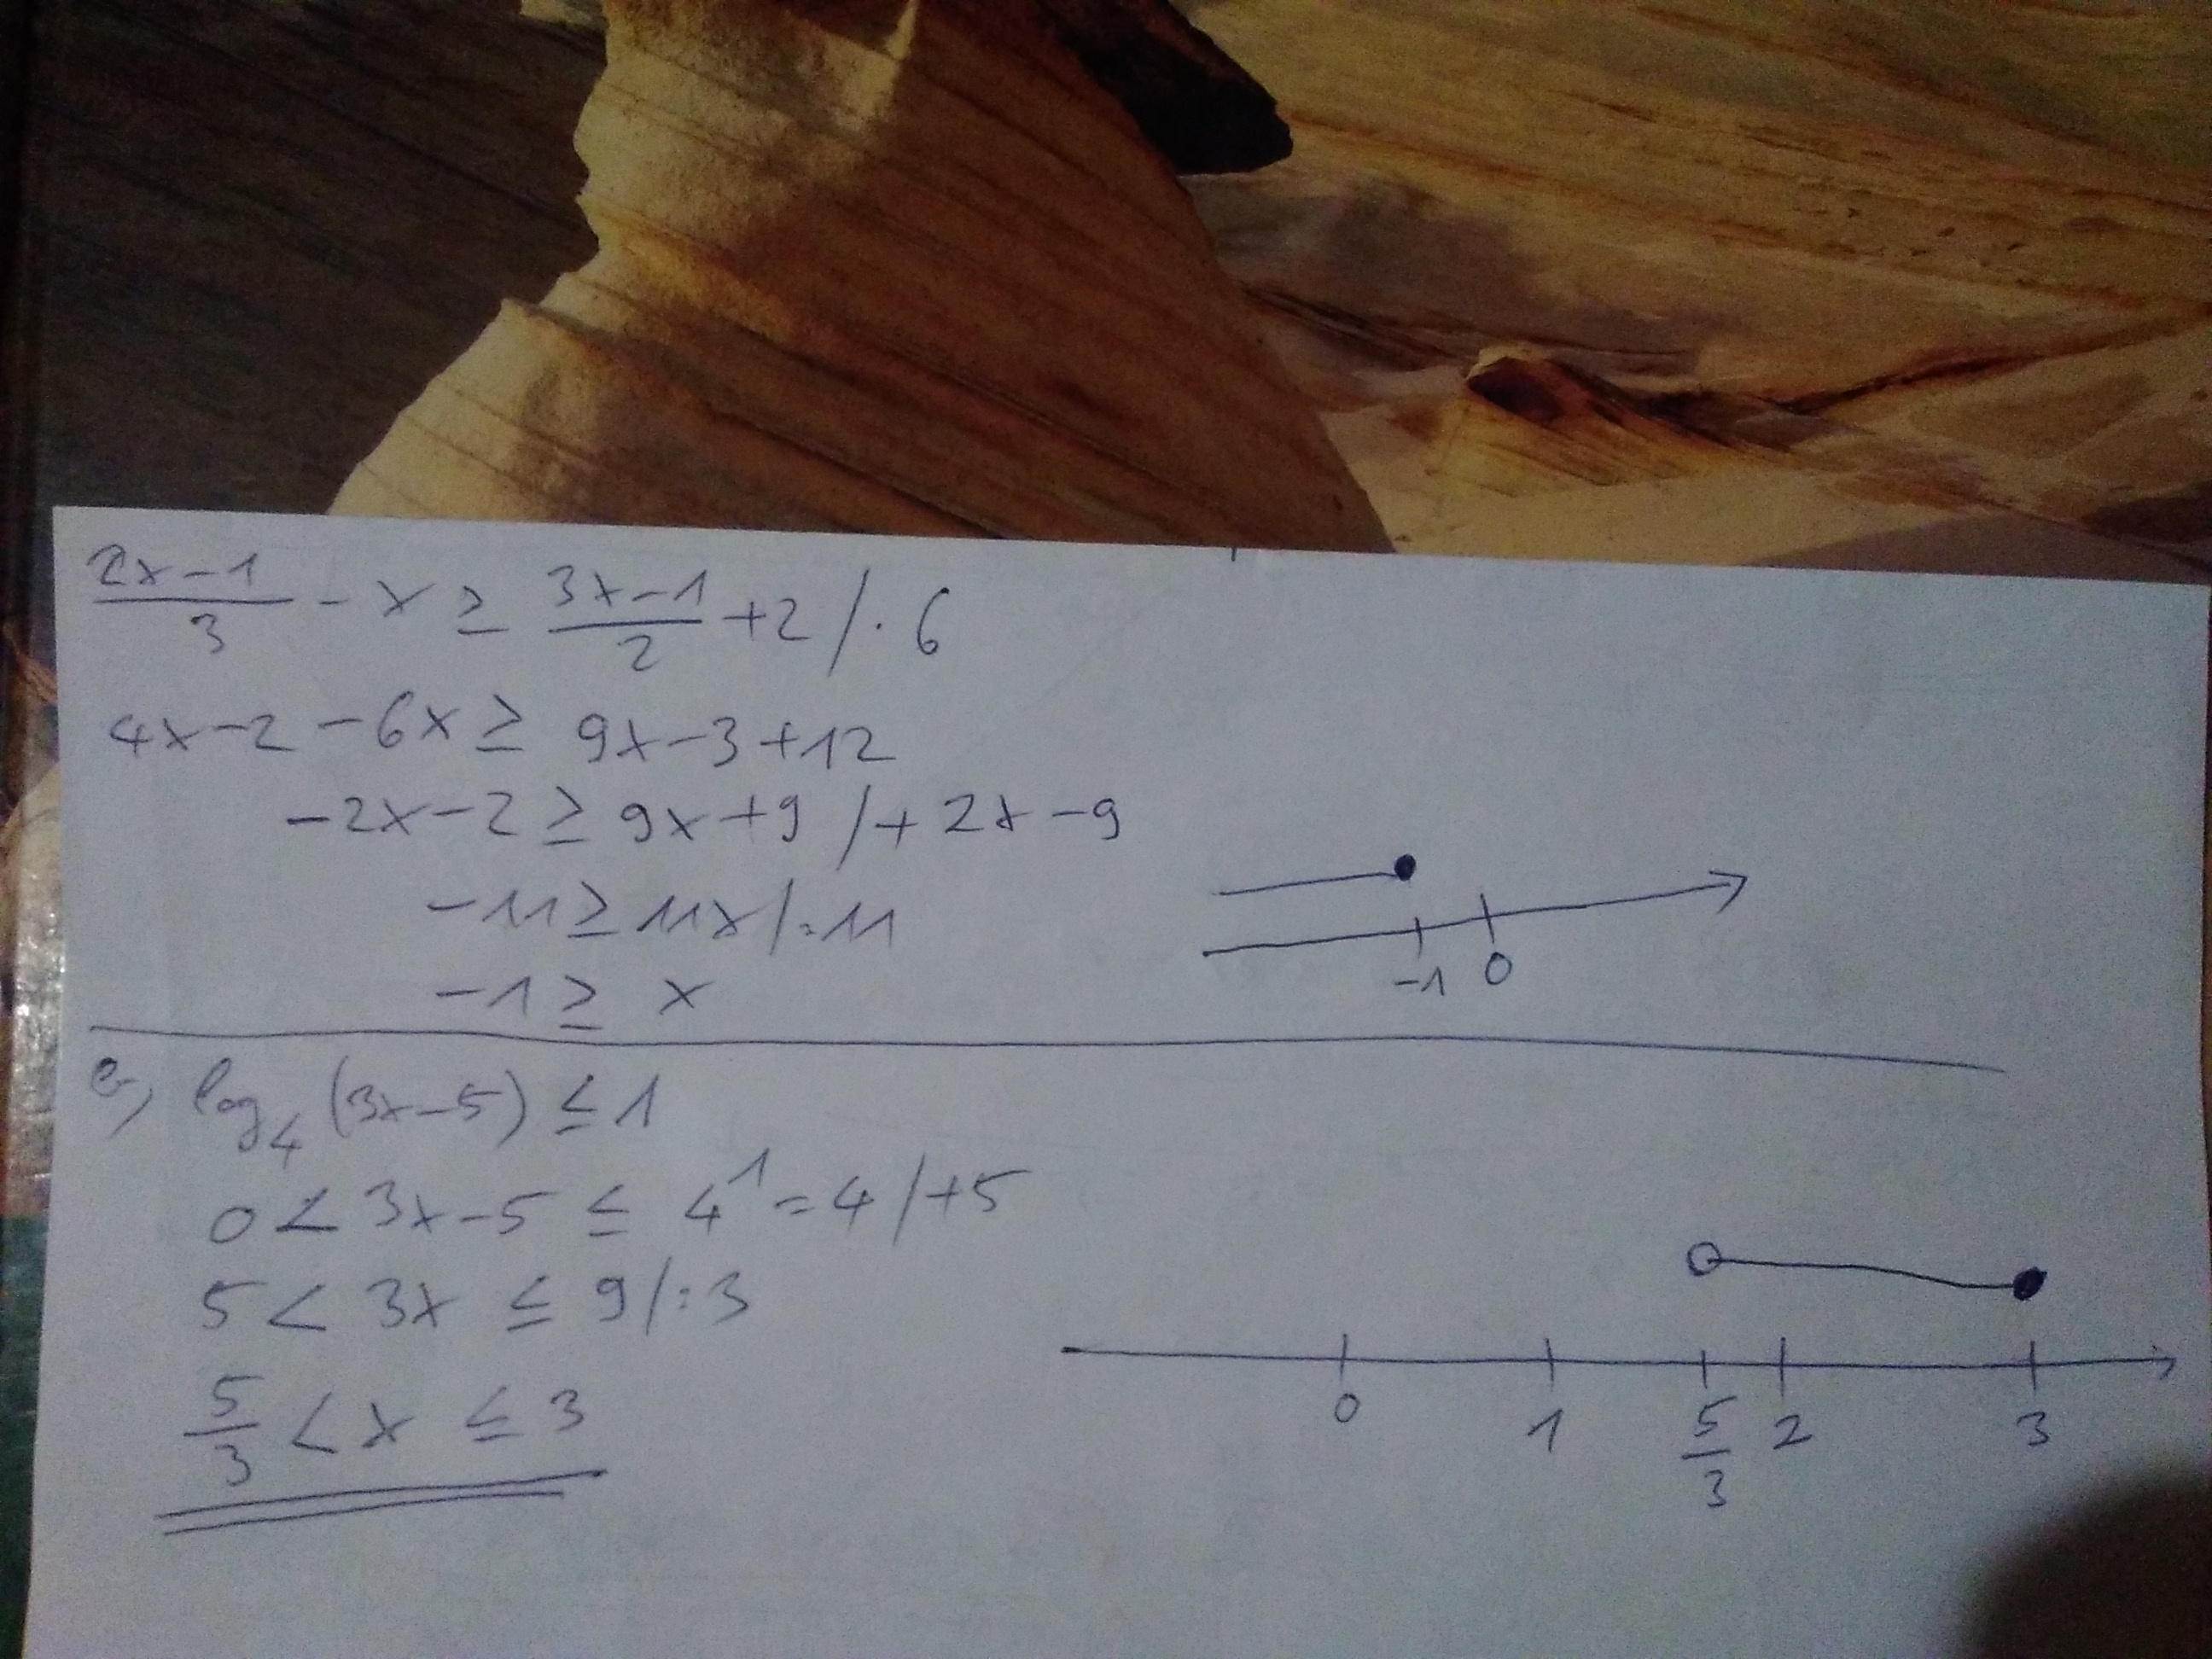 (2x-1)/3 - x ≥ (3x-1)/2 + 2 / · 6
4x-2 -6x ≥ 9x-3+12
-2x-2 ≥ 9x+9 /+2x-9
-11 ≥ 11x /:11
-1 ≥ x
-1 0
log₄(3x-5) ≤ 1
0 < 3x-5 ≤ 4¹ = 4 /+5
5 < 3x ≤ 9 /:3
5/3 < x ≤ 3
0 1 5/3 2 3